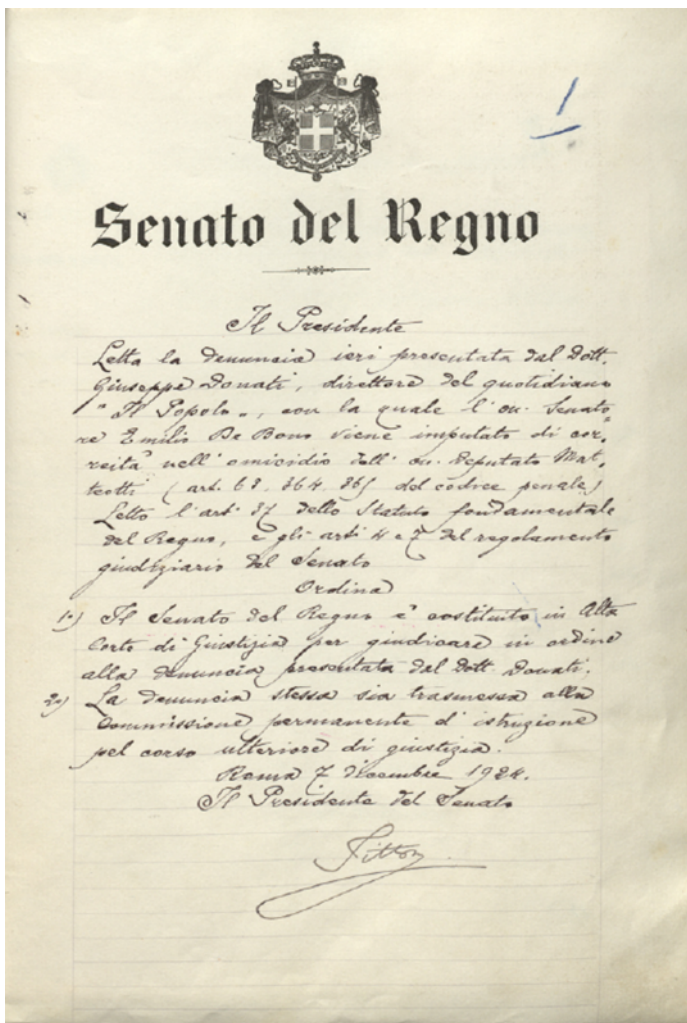 1
Senato del Regno
Il Presidente
Letta la denuncia ieri presentata dal Dott.
Giuseppe Donati, direttore del quotidiano
"Il Popolo", con la quale l'on. Senato
re Emilio De Bono viene imputato di cor,
reità nell'omicidio dell'on. deputato Mat,
teotti (art. 63. 364. 365 del codice penale)
Letto l'art. 37 dello Statuto fondamentale
del Regno, e gli arti 4 e 7 del regolamento
giudiziario del Senato
Ordina
1°) Il Senato del Regno è costituito in Alta
Corte di Giustizia per giudicare in ordine
alla denuncia presentata dal Dott. Donati.
2°) La denuncia stessa sia trasmessa alla
Commissione permanente d'istruzione
pel corso ulteriore di giustizia.
Roma 7 dicembre 1924.
Il Presidente del Senato
Tittoni